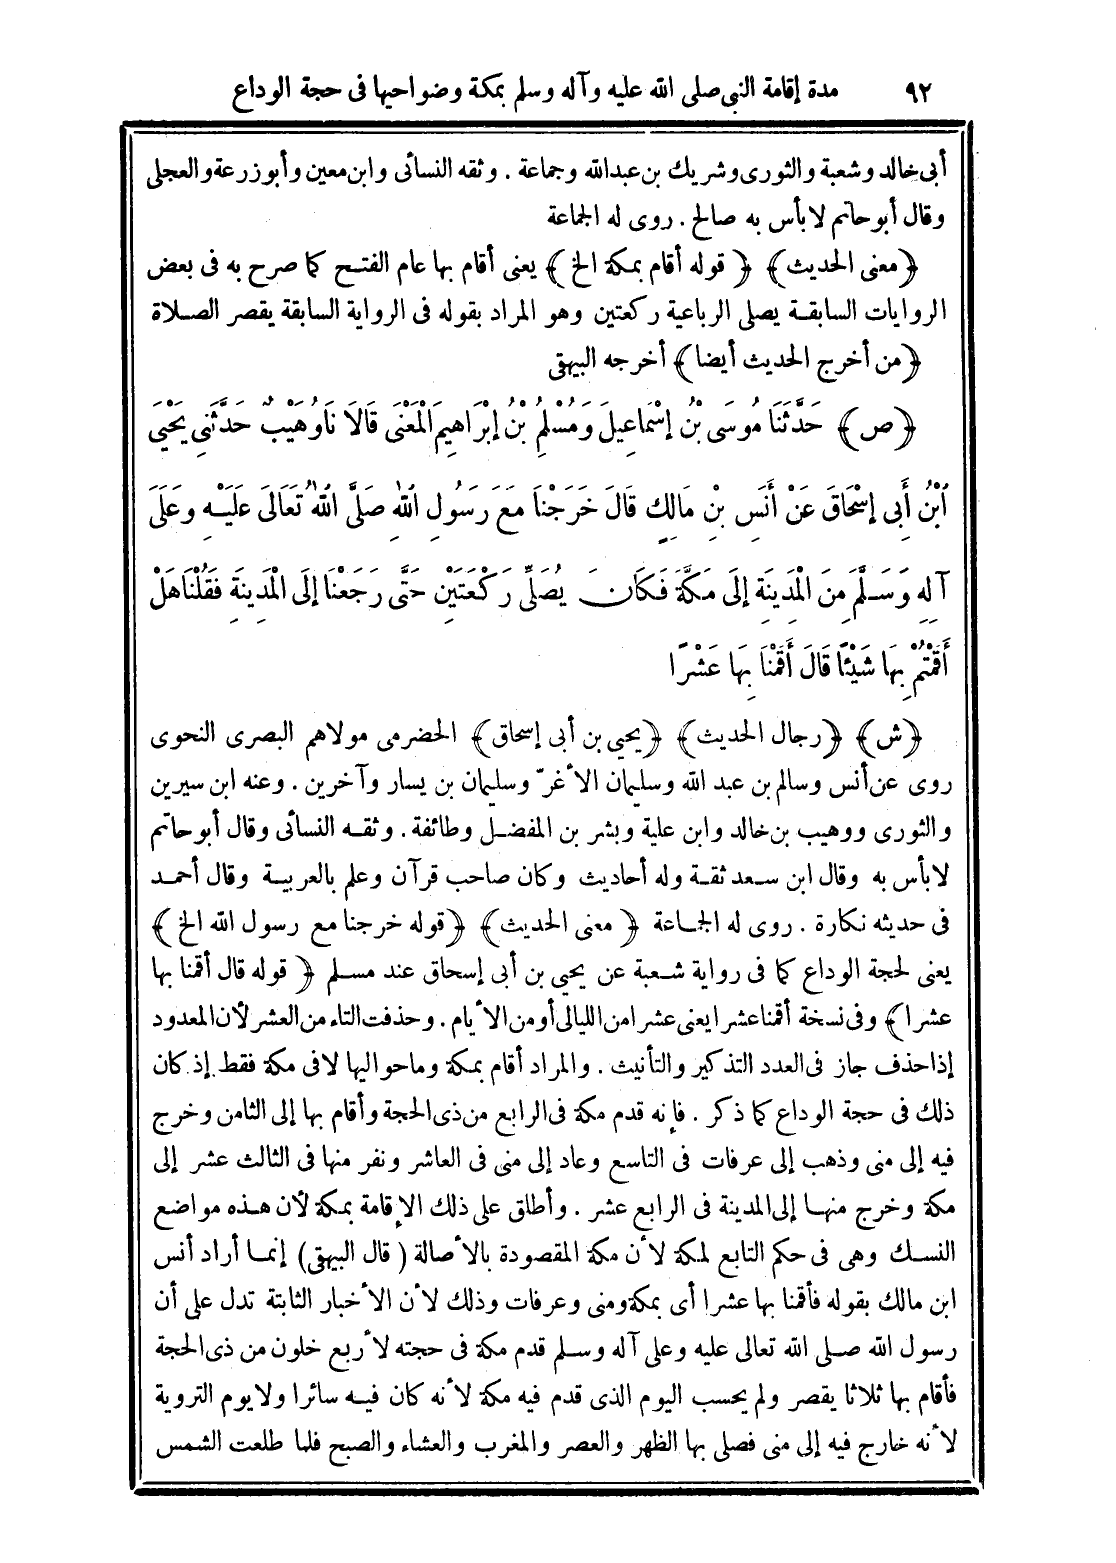 ٩٢ مدة إقامة النبى صلى الله عليه وآله وسلم بمكة وضواحيها فى حجة الوداع
أبى خالد وشعبة والثورى وشريك بن عبدالله وجماعة . وثقه النسائى وابن معين وأبوزرعة والعجلى
وقال أبوحاتم لابأس به صالح . روى له الجماعة
﴿معنى الحديث﴾ ﴿ قوله أقام بمكة الخ ﴾ يعنى أقام بها عام الفتح كما صرح به فى بعض
الروايات السابقة يصلى الرباعية ركعتين وهو المراد بقوله فى الرواية السابقة يقصر الصلاة
﴿من أخرج الحديث أيضا﴾ أخرجه البيهقى
﴿ص﴾ حَدَّثَنَا مُوسَى بْنُ إِسْمَاعِيلَ وَمُسْلِمُ بْنُ إِبْرَاهِيمَ الْمَعْنَى قَالَا نَا وُهَيْبٌ حَدَّثَنِي يَحْيَى
ابْنُ أَبِى إِسْحَاقَ عَنْ أَنَسِ بْنِ مَالِكٍ قَالَ خَرَجْنَا مَعَ رَسُولِ اللهِ صَلَّى اللهُ تَعَالَى عَلَيْهِ وَعَلَى
آلِهِ وَسَلَّمَ مِنَ الْمَدِينَةِ إِلَى مَكَّةَ فَكَانَ يُصَلِّى رَكْعَتَيْنِ حَتَّى رَجَعْنَا إِلَى الْمَدِينَةِ فَقُلْنَا هَلْ
أَقَمْتُمْ بِهَا شَيْئًا قَالَ أَقَمْنَا بِهَا عَشْرًا
﴿ش﴾ ﴿رجال الحديث﴾ ﴿يحيى بن أبى إسحاق﴾ الحضرمى مولاهم البصرى النحوى
روى عن أنس وسالم بن عبد الله وسليمان الأغرّ وسليمان بن يسار وآخرين . وعنه ابن سيرين
والثورى ووهيب بن خالد وابن علية وبشر بن المفضل وطائفة . وثقه النسائى وقال أبوحاتم
لابأس به وقال ابن سعد ثقة وله أحاديث وكان صاحب قرآن وعلم بالعربية وقال أحمد
فى حديثه نكارة . روى له الجماعة ﴿ معنى الحديث﴾ ﴿قوله خرجنا مع رسول الله الخ﴾
يعنى لحجة الوداع كما فى رواية شعبة عن يحيى بن أبى إسحاق عند مسلم ﴿ قوله قال أقمنا بها
عشرا﴾ وفى نسخة أقمنا عشرا يعنى عشرا من الليالى أو من الأيام . وحذفت التاء من العشر لأن المعدود
إذا حذف جاز فى العدد التذكير والتأنيث . والمراد أقام بمكة وماحواليها لا فى مكة فقط إذ كان
ذلك فى حجة الوداع كما ذكر . فإنه قدم مكة فى الرابع من ذى الحجة وأقام بها إلى الثامن وخرج
فيه إلى منى وذهب إلى عرفات فى التاسع وعاد إلى منى فى العاشر ونفر منها فى الثالث عشر إلى
مكة وخرج منها إلى المدينة فى الرابع عشر . وأطلق على ذلك الإقامة بمكة لأن هذه مواضع
النسك وهى فى حكم التابع لمكة لأن مكة المقصودة بالأصالة ( قال البيهقى) إنما أراد أنس
ابن مالك بقوله فأقمنا بها عشرا أى بمكة ومنى وعرفات وذلك لأن الأخبار الثابتة تدل على أن
رسول الله صلى الله تعالى عليه وعلى آله وسلم قدم مكة فى حجته لأربع خلون من ذى الحجة
فأقام بها ثلاثا يقصر ولم يحسب اليوم الذى قدم فيه مكة لأنه كان فيه سائرا ولا يوم التروية
لأنه خارج فيه إلى منى فصلى بها الظهر والعصر والمغرب والعشاء والصبح فلما طلعت الشمس